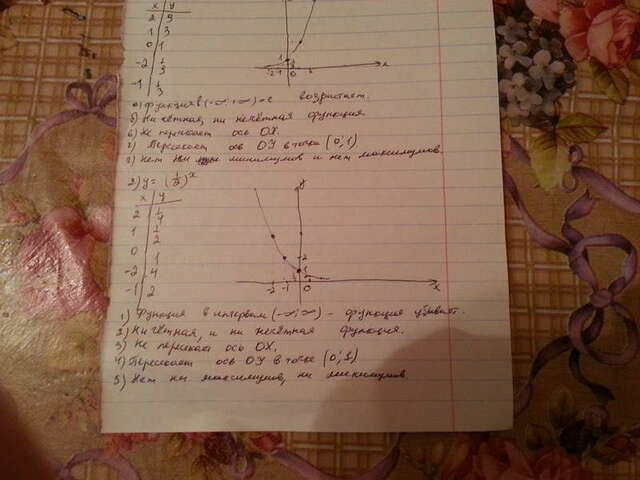 x y
2 9
1 3
0 1
-2 1/9
-1 1/3
-2 -1 0 x
а) функция в (-∞; +∞) - е возрастает.
б) Ни чётная, ни нечётная функция.
в) Не пересекает ось OX.
г) Пересекает ось OY в точке (0; 1)
г) Нет ни минимумов и нет максимумов.
2) y = (1/2)^x
x y
2 1/4
1 1/2
0 1
-2 4
-1 2
y
2
1
-2 -1 0 x
1) Функция в интервале (-∞; ∞) - функция убывает.
2) Ни чётная, и ни нечётная функция.
3) Не пересекает ось OX.
4) Пересекает ось OY в точке (0; 1)
5) Нет ни максимумов, ни минимумов